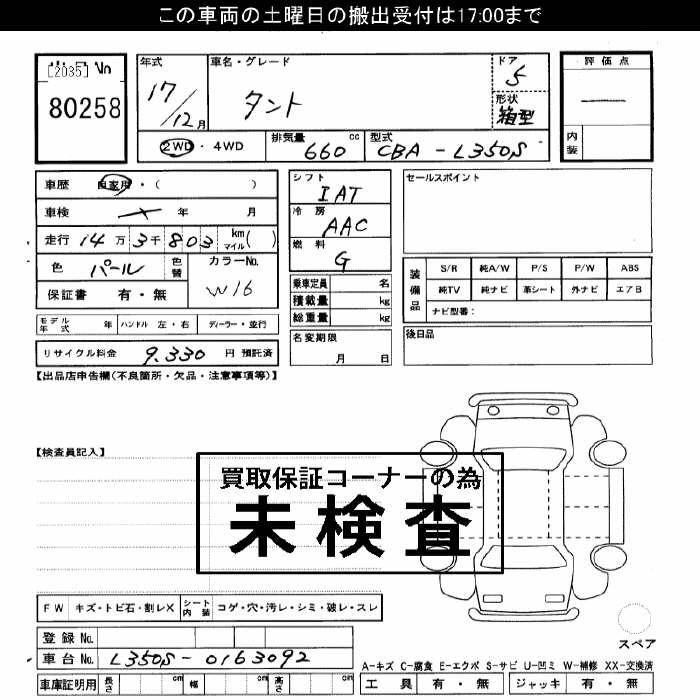 この車両の土曜日の搬出受付は17:00まで
[2035] No
80258
年式 17/12月
車名・グレード タント
ドア 5
形状 箱型
評価点 —
内装
2WD ・ 4WD 排気量 660 cc 型式 CBA - L350S
車歴 自家用・( )
車検 年 月
走行 14万 3千 803 km マイル ( )
色 パール 色替 カラーNo. W16
保証書 有・無
モデル年式 年 ハンドル 左・右 ディーラー・並行
リサイクル料金 9,330 円 預託済
シフト IAT
冷房 AAC
燃料 G
乗車定員 名
積載量 kg
総重量 kg
名変期限 月 日
セールスポイント
装備品 S/R 純A/W P/S P/W ABS
純TV 純ナビ 革シート 外ナビ エアB
ナビ型番:
後日品
【出品店申告欄(不良箇所・欠品・注意事項等)】
【検査員記入】
買取保証コーナーの為
未検査
FW キズ・トビ石・割レX シート内装 コゲ・穴・汚レ・シミ・破レ・スレ
登録No.
車台No. L350S - 0163092
車庫証明用 長さ cm 幅 cm 高さ cm
スペア
A-キズ C-腐食 E-エクボ S-サビ U-凹ミ W-補修 XX-交換済
工具 有・無 ジャッキ 有・無